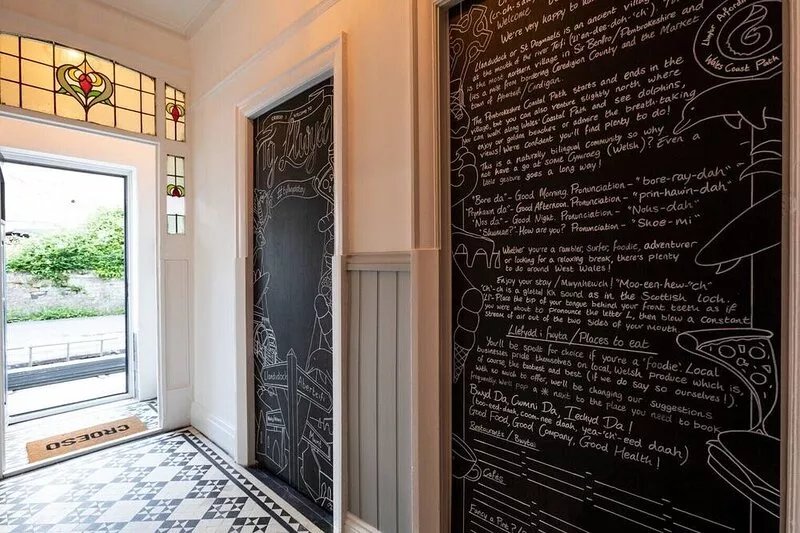 CROESO
Croeso / Welcome to
Tŷ
Llandudoch
Aberteifi
(cr-oh-so)
Welcome
We're very happy to ha
Llandudoch or St Dogmaels is an ancient village
at the mouth of the river Teifi
is the most northern village in Sir Benfro/Pembrokeshire and
is a mile from bordering Ceredigion County and the Market
town of Aberteifi/Cardigan.
The Pembrokeshire Coastal Path starts and ends in the
village, but you can also venture slightly north where
you can walk along Wales' Coast Path and see dolphins,
enjoy our golden beaches or admire the breath-taking
views! We're confident you'll find plenty to do!
This is a naturally bilingual community so why
not have a go at some Cymraeg (Welsh)? Even a
little gesture goes a long way!
"Bore da" - Good Morning. Pronunciation - "bore-ray-dah"
"Prynhawn da" - Good Afternoon. Pronunciation - "prin-hawn-dah"
"Nos da" - Good Night. Pronunciation - "Nohs-dah"
"Shwmae?" - How are you? Pronunciation - "Shoe-mi"
Whether you're a rambler, surfer, foodie, adventurer
or looking for a relaxing break, there's plenty
to do around West Wales!
Enjoy your stay / Mwynhewch! "Moo-een-hew-"ch"
"ch"- ch is a glottal kh sound as in the Scottish loch.
"Ll"- Place the top of your tongue behind your front teeth as if
you were about to pronounce the letter L, then blow a constant
stream of air out of the two sides of your mouth.
Llefydd i fwyta / Places to eat
You'll be spoilt for choice if you're a 'Foodie'. Local
businesses pride themselves on local, Welsh produce which is,
of course, the tastiest and best (if we do say so ourselves!).
With so much to offer, we'll be changing our suggestions
frequently. We'll pop a * next to the place you need to book
Bwyd Da, Cwmni Da, Iechyd Da!
(boo-eed-daah, coom-nee daah, yea-"ch"-eed daah)
Good Food, Good Company, Good Health!
Restaurants / Bwytai
Cafes
Fancy a Pint?
Wales Coast Path